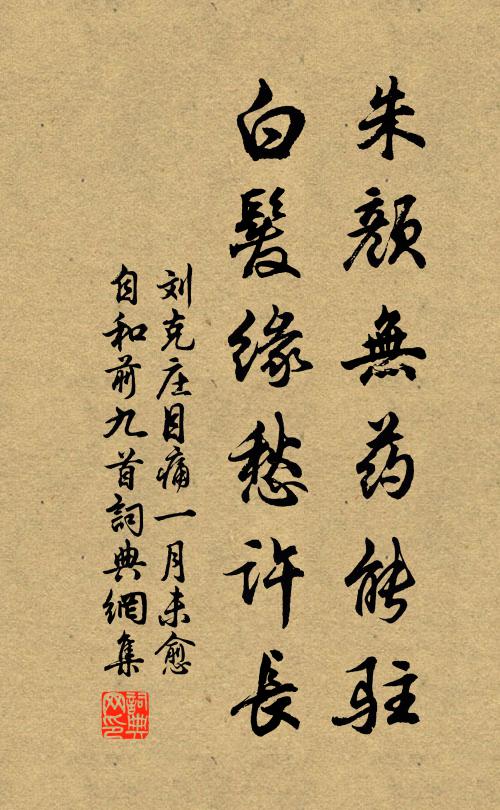 朱顏無药能駐
白髮緣愁許長
刘克庄目痛一月未愈
自和前九首詞典網集
詞典网印